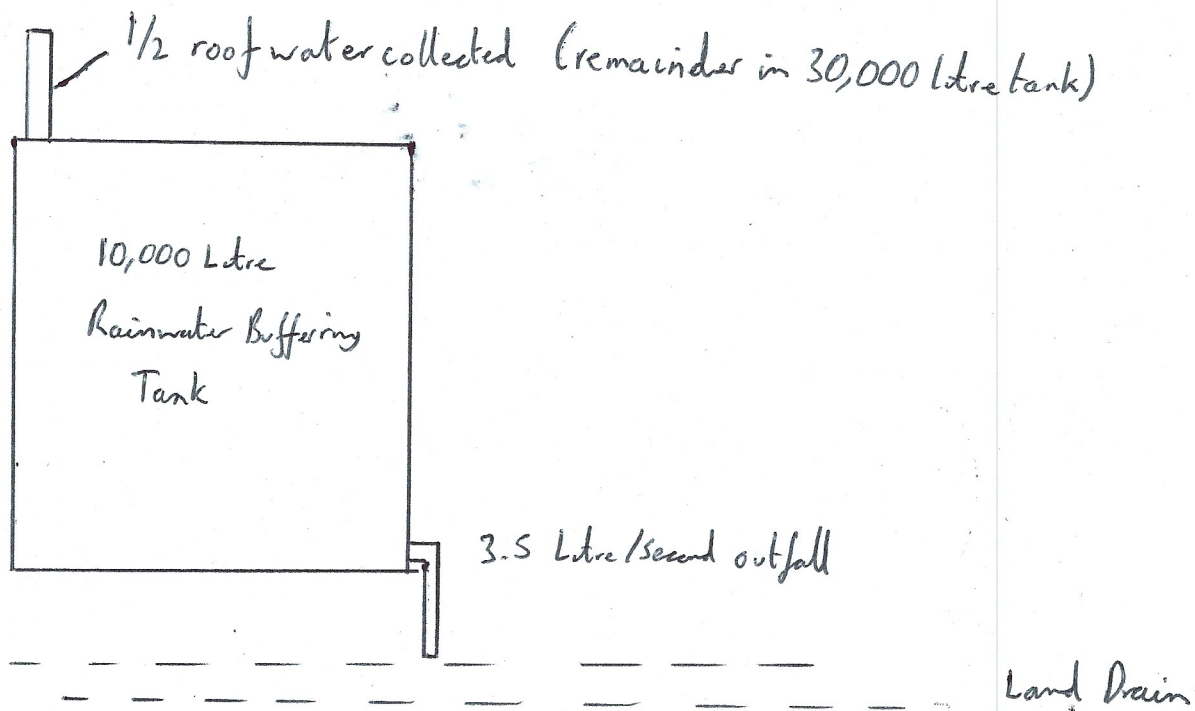 1/2 roof water collected (remainder in 30,000 litre tank)
10,000 Litre
Rainwater Buffering
Tank
3.5 Litre/second outfall
Land Drain